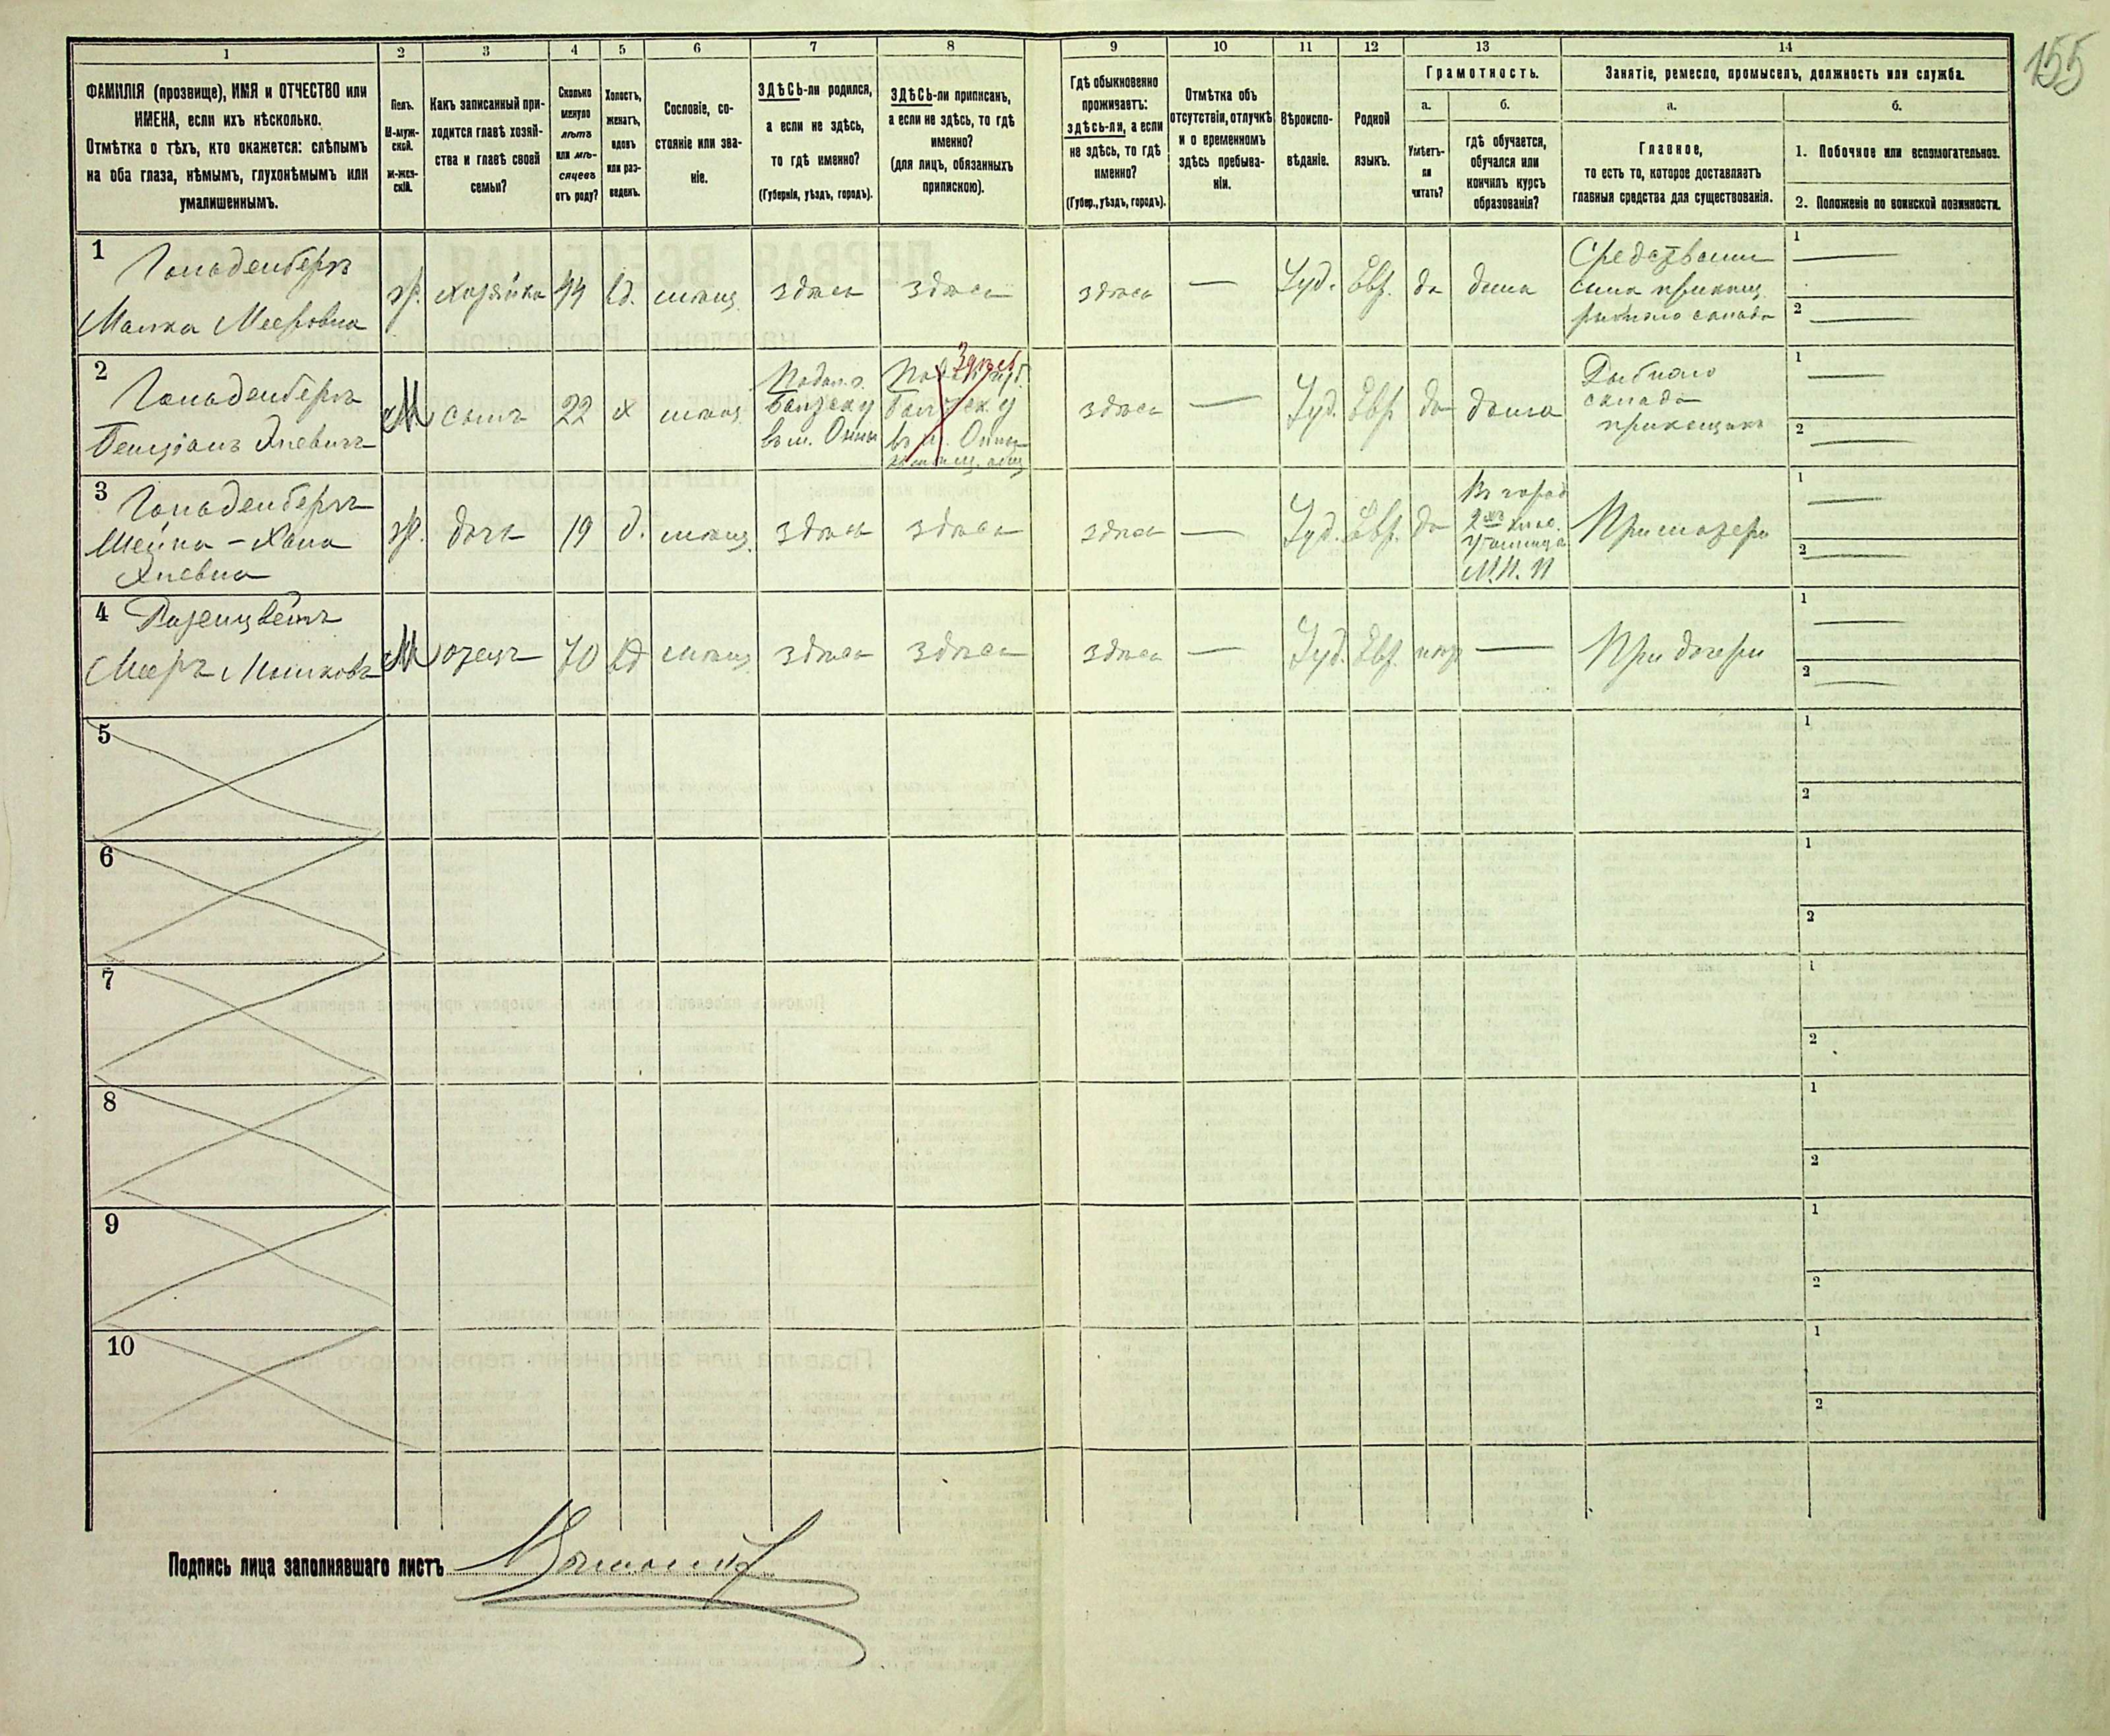 155
1
2
3
4
5
6
7
8
9
10
11
12
13
14
ФАМИЛІЯ (прозвище), ИМЯ и ОТЧЕСТВО или
ИМЕНА, если ихъ нѣсколько.
Отмѣтка о тѣхъ, кто окажется: слѣпымъ
на оба глаза, нѣмымъ, глухонѣмымъ или
умалишеннымъ.
Полъ.
М-муж-
ской.
Ж-жен-
скій.
Какъ записанный при-
ходится главѣ хозяй-
ства и главѣ своей
семьи?
Сколько
минуло
лѣтъ
или мѣ-
сяцевъ
отъ роду?
Холостъ,
женатъ,
вдовъ
или раз-
веденъ.
Сословіе, со-
стояніе или зва-
ніе.
ЗДѢСЬ-ли родился,
а если не здѣсь,
то гдѣ именно?
(Губернія, уѣздъ, городъ).
ЗДѢСЬ-ли приписанъ,
а если не здѣсь, то гдѣ
именно?
(для лицъ, обязанныхъ
припискою).
Гдѣ обыкновенно
проживаетъ:
здѣсь-ли, а если
не здѣсь, то гдѣ
именно?
(Губер., уѣздъ, городъ).
Отмѣтка объ
отсутствіи, отлучкѣ
и о временномъ
здѣсь пребыва-
ніи.
Вѣроиспо-
вѣданіе.
Родной
языкъ.
Грамотность.
а.
Умѣетъ-
ли
читать?
б.
гдѣ обучается,
обучался или
кончилъ курсъ
образованія?
Занятіе, ремесло, промыселъ, должность или служба.
а.
Главное,
то есть то, которое доставляетъ
главныя средства для существованія.
б.
1. Побочное или вспомогательное.
2. Положеніе по воинской повинности.
1
Гольденбергъ
Малка Мееровна
ж. хозяйка 44 вд. мѣщ. здѣсь здѣсь здѣсь — Іуд. Евр. да дома
Средствами
сына прикащ.
рыбнаго склада
1 —
2 —
2
Гольденбергъ
Бенціонъ Хаевичъ
М сынъ 22 х мѣщ.
Подол. г.
Балтск. у
въ м.
Здѣсь
Балтск. у
въ м.
здѣсь — Іуд. Евр. да дома
Рыбнаго
склада
прикащикъ
1 —
2 —
3
Гольденбергъ
Шейна-Хана
ж. дочь 19 д. мѣщ. здѣсь здѣсь здѣсь — Іуд. Евр. да
въ город.
2хъ клас.
училищѣ
М.Н.П
При матери
1 —
2 —
4
Розенцвейгъ
Мееръ
М отецъ 70 вд мѣщ. здѣсь здѣсь здѣсь — Іуд. Евр. нѣтъ —
При дочери
1 —
2 —
5
1
2
6
1
2
7
1
2
8
1
2
9
1
2
10
1
2
Подпись лица заполнявшаго листъ